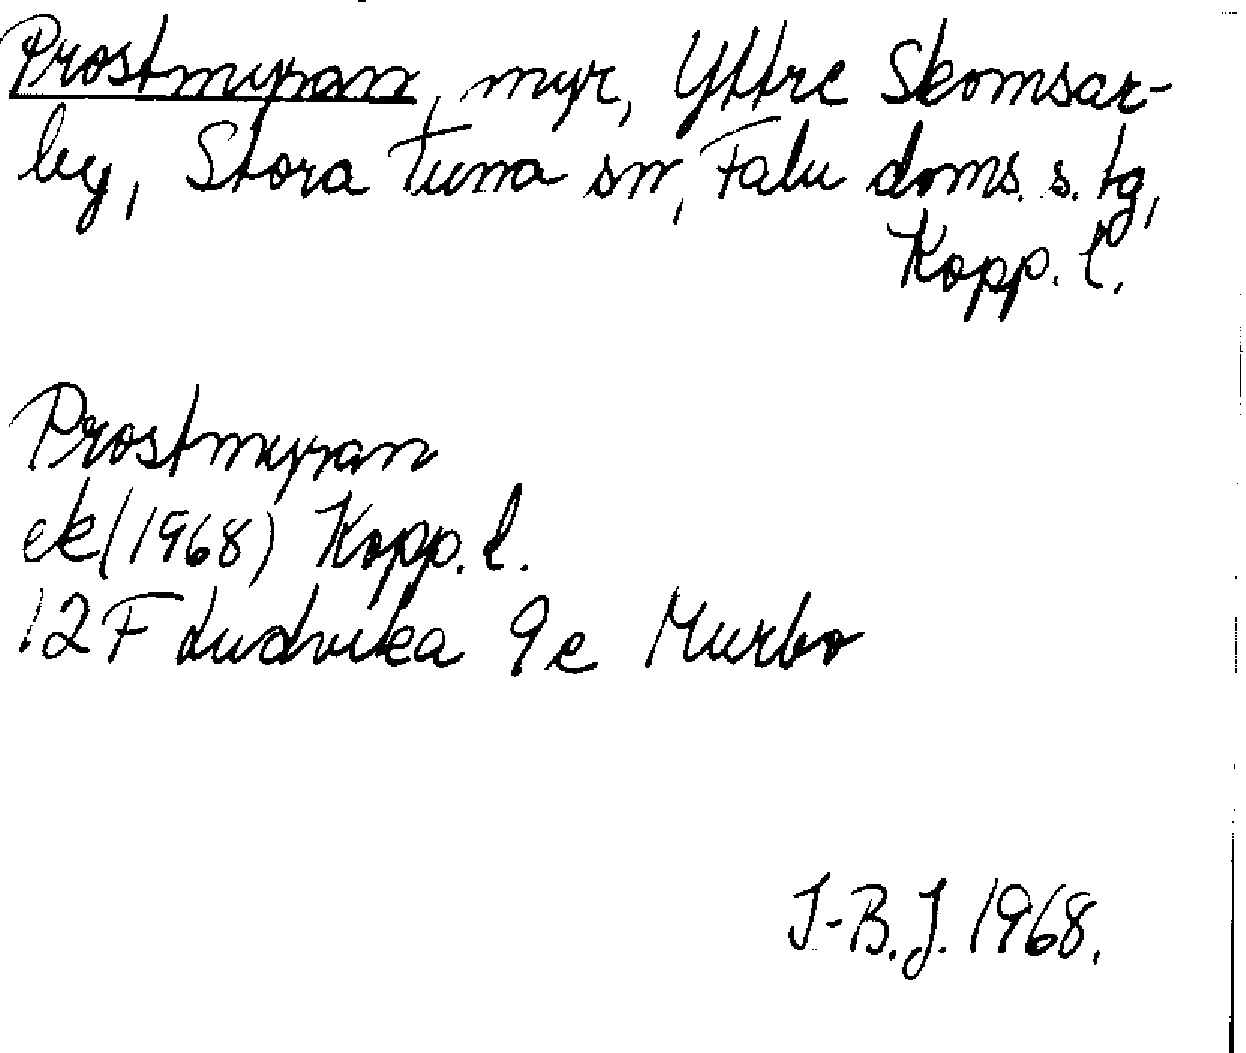 Prostmyran, myr, Yttre Skomsar-
by, Stora Tuna sn, Falu doms. s. tg,
Kopp. l.
Prostmyran
ek (1968) Kopp. l.
12 F Ludvika 9 e Murbo
I-B. J. 1968.